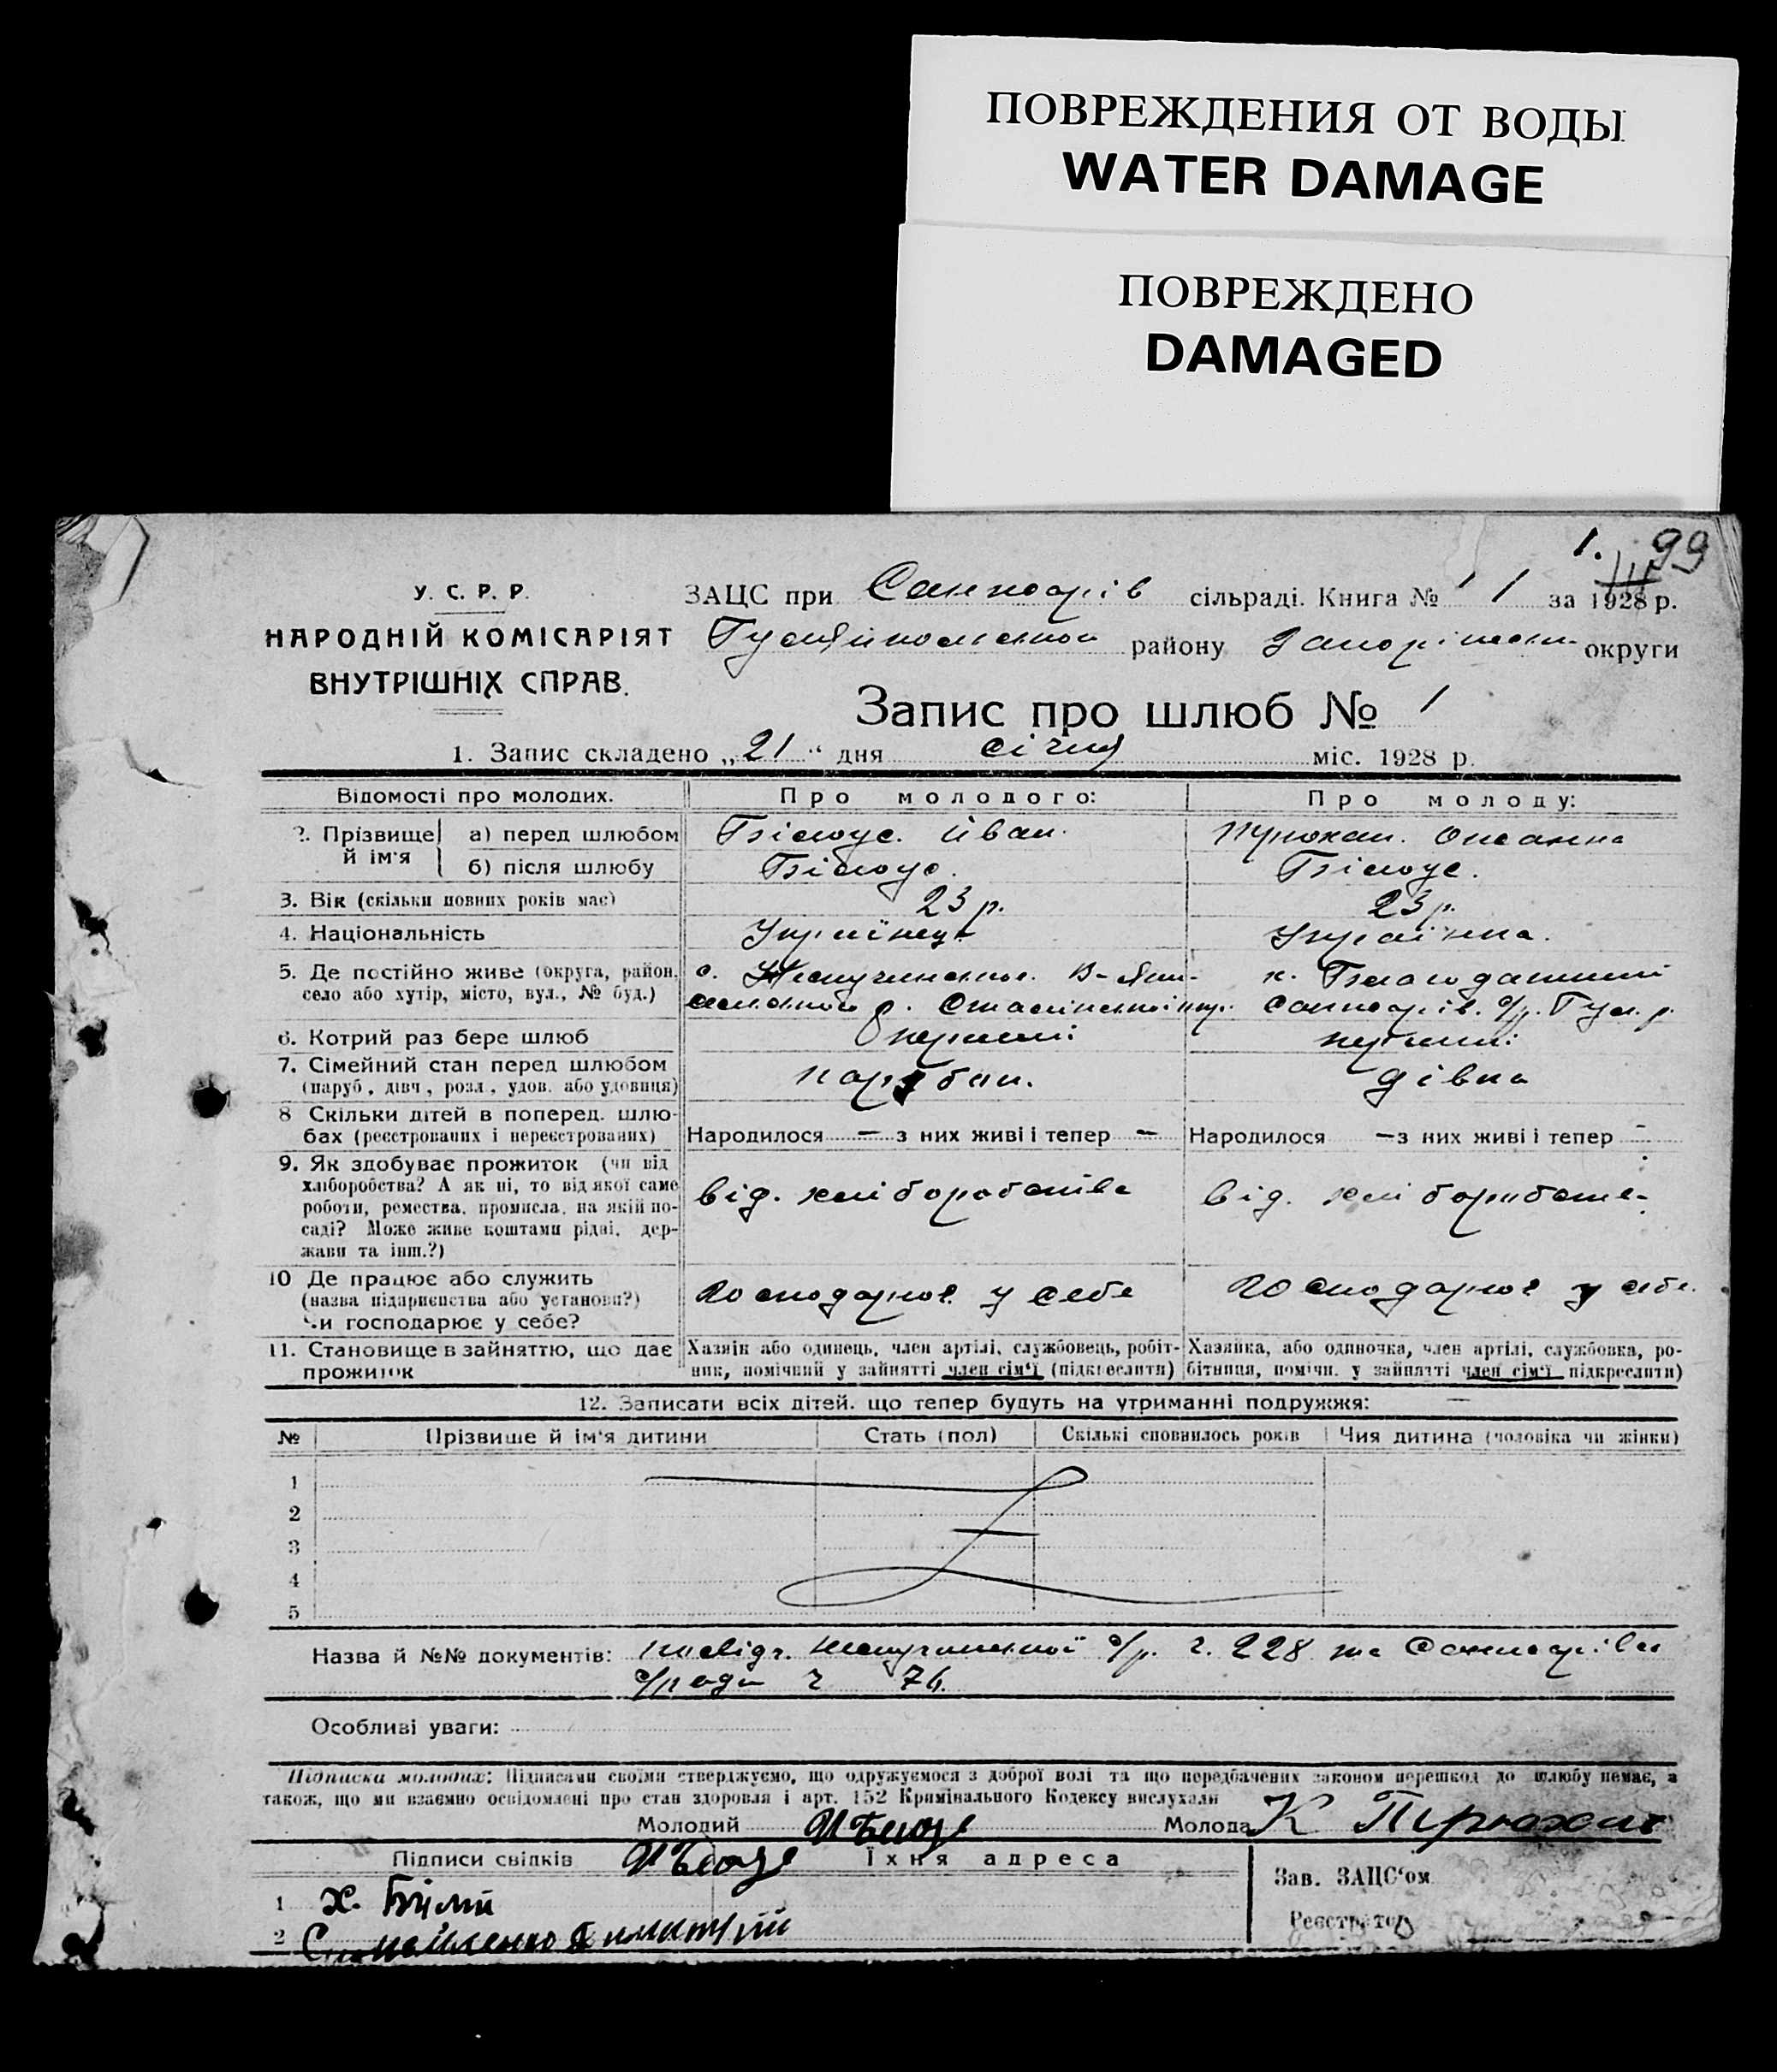 ПОВРЕЖДЕНИЯ ОТ ВОДЫ
WATER DAMAGE
ПОВРЕЖДЕНО
DAMAGED
1. 99
У. С. Р. Р.
НАРОДНІЙ КОМІСАРІЯТ
ВНУТРІШНІХ СПРАВ.
ЗАЦС при сільраді. Книга № 1 за 1928 р.
району округи
Запис про шлюб № 1
1. Запис складено „21“ дня січня міс. 1928 р.
Відомості про молодих. Про молодого: Про молоду:
2. Прізвище й ім'я а) перед шлюбом Білоус. Іван.
б) після шлюбу Білоус. Білоус.
3. Вік (скільки повних років має) 23 р. 23 р.
4. Національність Українець Українка.
5. Де постійно живе (округа, район,
село або хутір, місто, вул., № буд.)
6. Котрий раз бере шлюб перший перший
7. Сімейний стан перед шлюбом
(паруб., дівч., розл., удов. або удовиця) парубок. дівка
8 Скільки дітей в поперед. шлю-
бах (реєстрованих і нереєстрованих) Народилося — з них живі і тепер — Народилося — з них живі і тепер -
9. Як здобуває прожиток (чи від
хліборобства? А як ні, то від якої саме
роботи, ремества, промисла, на якій по-
саді? Може живе коштами рідні, дер-
жави та інш.?)
від. хліборобства від.
10 Де працює або служить
(назва підприємства або установи?)
Чи господарює у себе?
господарює у себе господарює у себе.
11. Становище в зайняттю, що дає
прожиток
Хазяїн або одинець, член артілі, службовець, робіт-
ник, помічний у зайнятті член сім'ї (підкреслити)
Хазяйка, або одиночка, член артілі, службовка, ро-
бітниця, помічн. у зайнятті член сім'ї підкреслити)
12. Записати всіх дітей, що тепер будуть на утриманні подружжя: —
№ Прізвище й ім'я дитини Стать (пол) Скількі сповнилось років Чия дитина (чоловіка чи жінки)
1
2
3
4
5
Назва й №№ документів: с/р. ч. 228 та
с/ради ч 76.
Особливі уваги:
Підписка молодих: Підписами своїми стверджуємо, що одружуємося з доброї волі та що передбачених законом перешкод до шлюбу немає, а
також, що ми взаємно освідомлені про стан здоровля і арт. 152 Кримінального Кодексу вислухали
Молодий Молода К
Підписи свідків Їхня адреса
Зав. ЗАЦС'ом
1 Х. Білий
Реєстратор
2